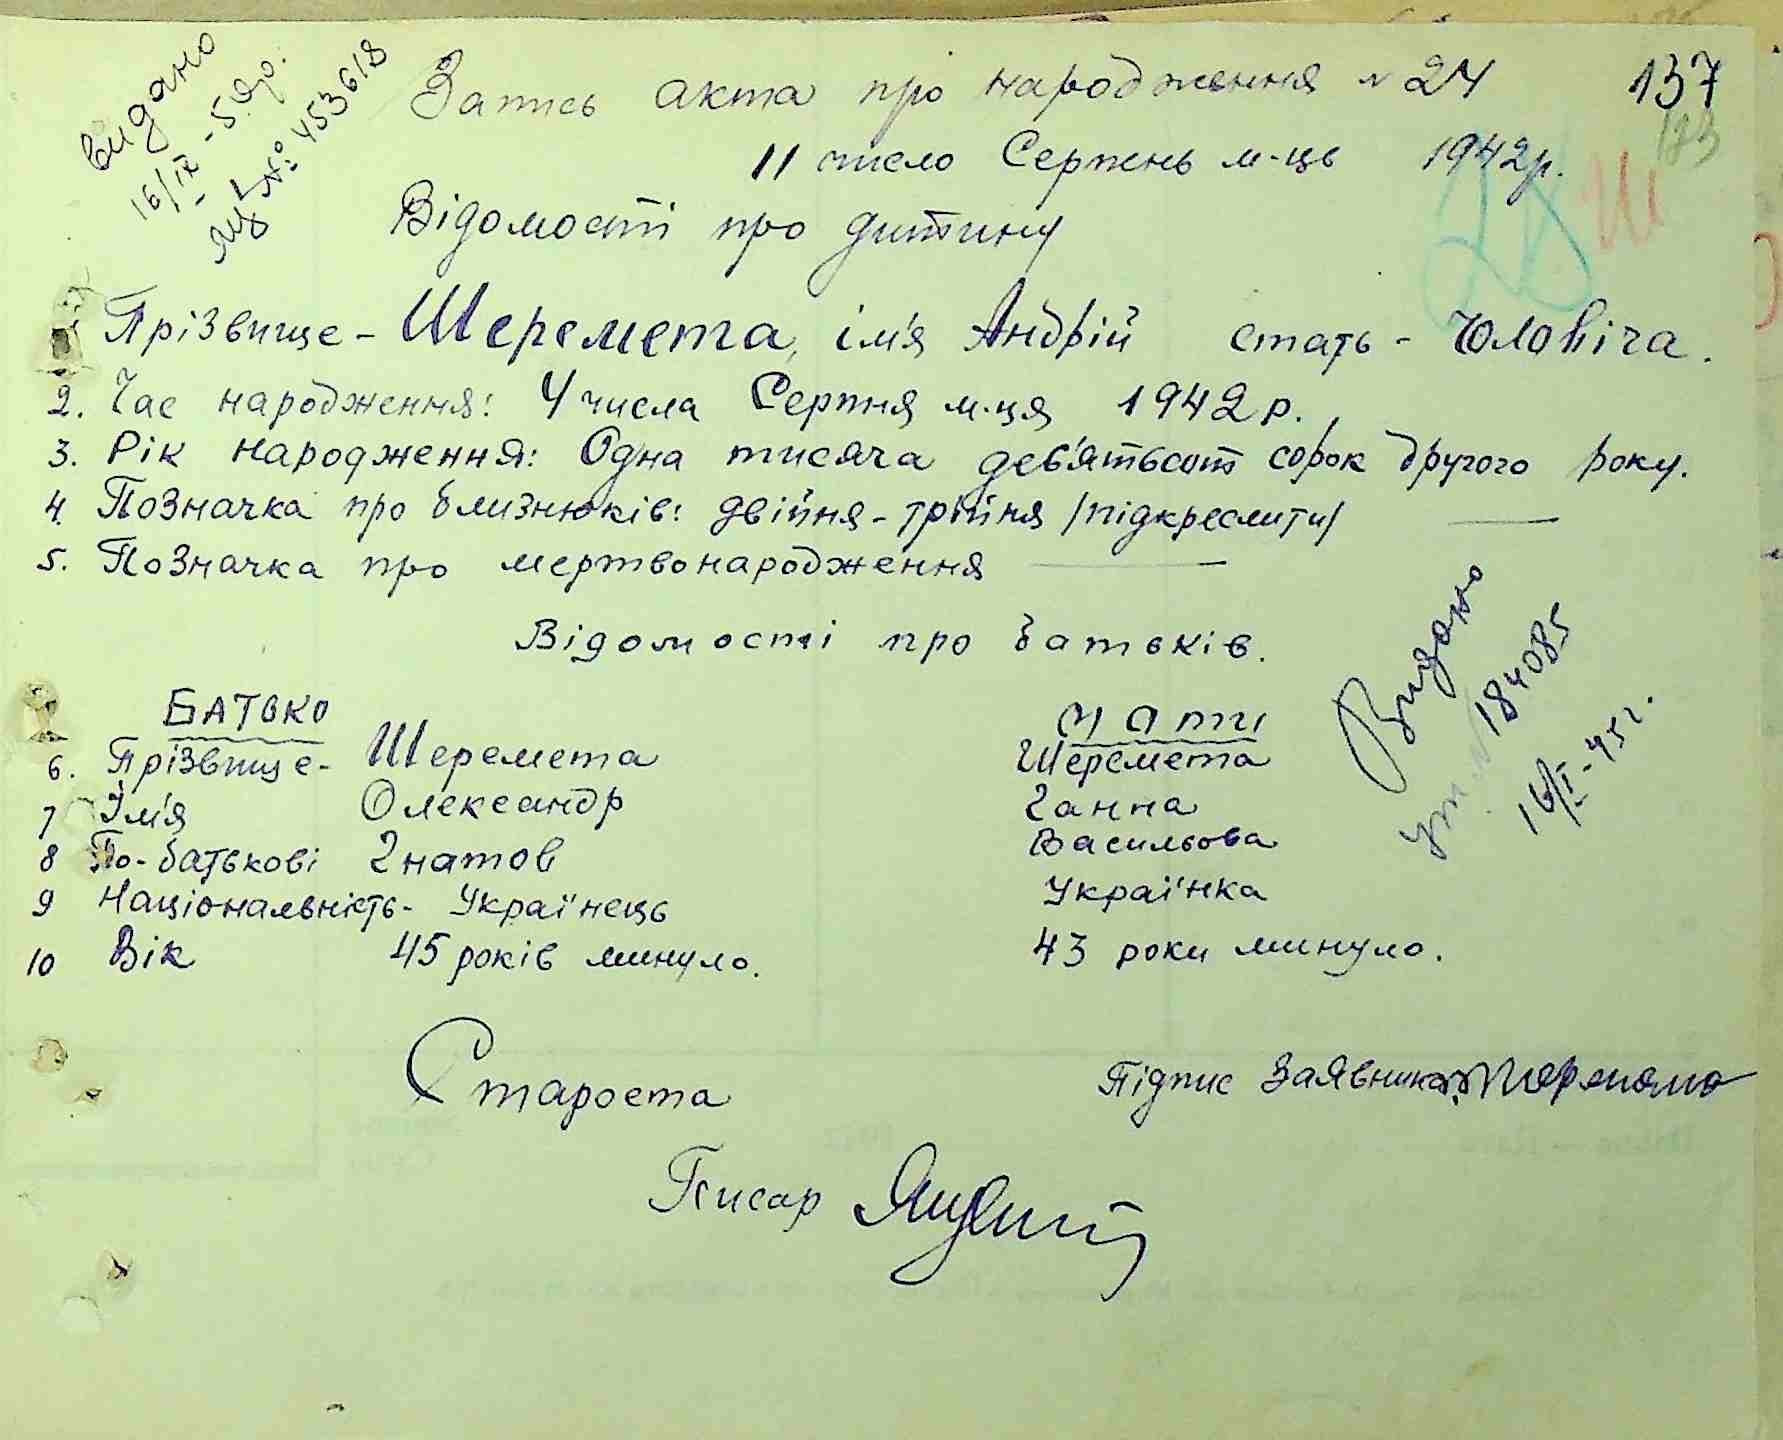 видано
16/IX - 50р.
ЯЦ № 453618
Запись акта про народження № 24
137
11 число Серпень м-ць 1942р.
Ш
Відомості про дитину
Прізвище - Шеремета, ім'я Андрій стать - Чоловіча.
2. Час народження: 4 числа Серпня м-ця 1942 р.
3. Рік народження: Одна тисяча дев'ятьсот сорок другого року.
4. Позначка про близнюків: двійня - трійня /підкреслити/ —
5. Позначка про мертвонародження —
Відомості про батьків.
Батько Мати
6. Прізвище - Шеремета Шеремета
7 Ім'я Олександр Ганна
8 По-батькові Гнатов Васильова
9 Національність - Українець Українка
10 Вік 45 років минуло. 43 роки минуло.
Видано
184085
16/I - 45г.
Староста
Підпис Заявника
Писар